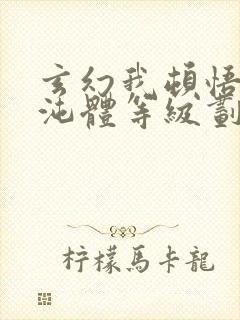 玄幻我頓悟
沌體等級劃
柠檬馬卡龍